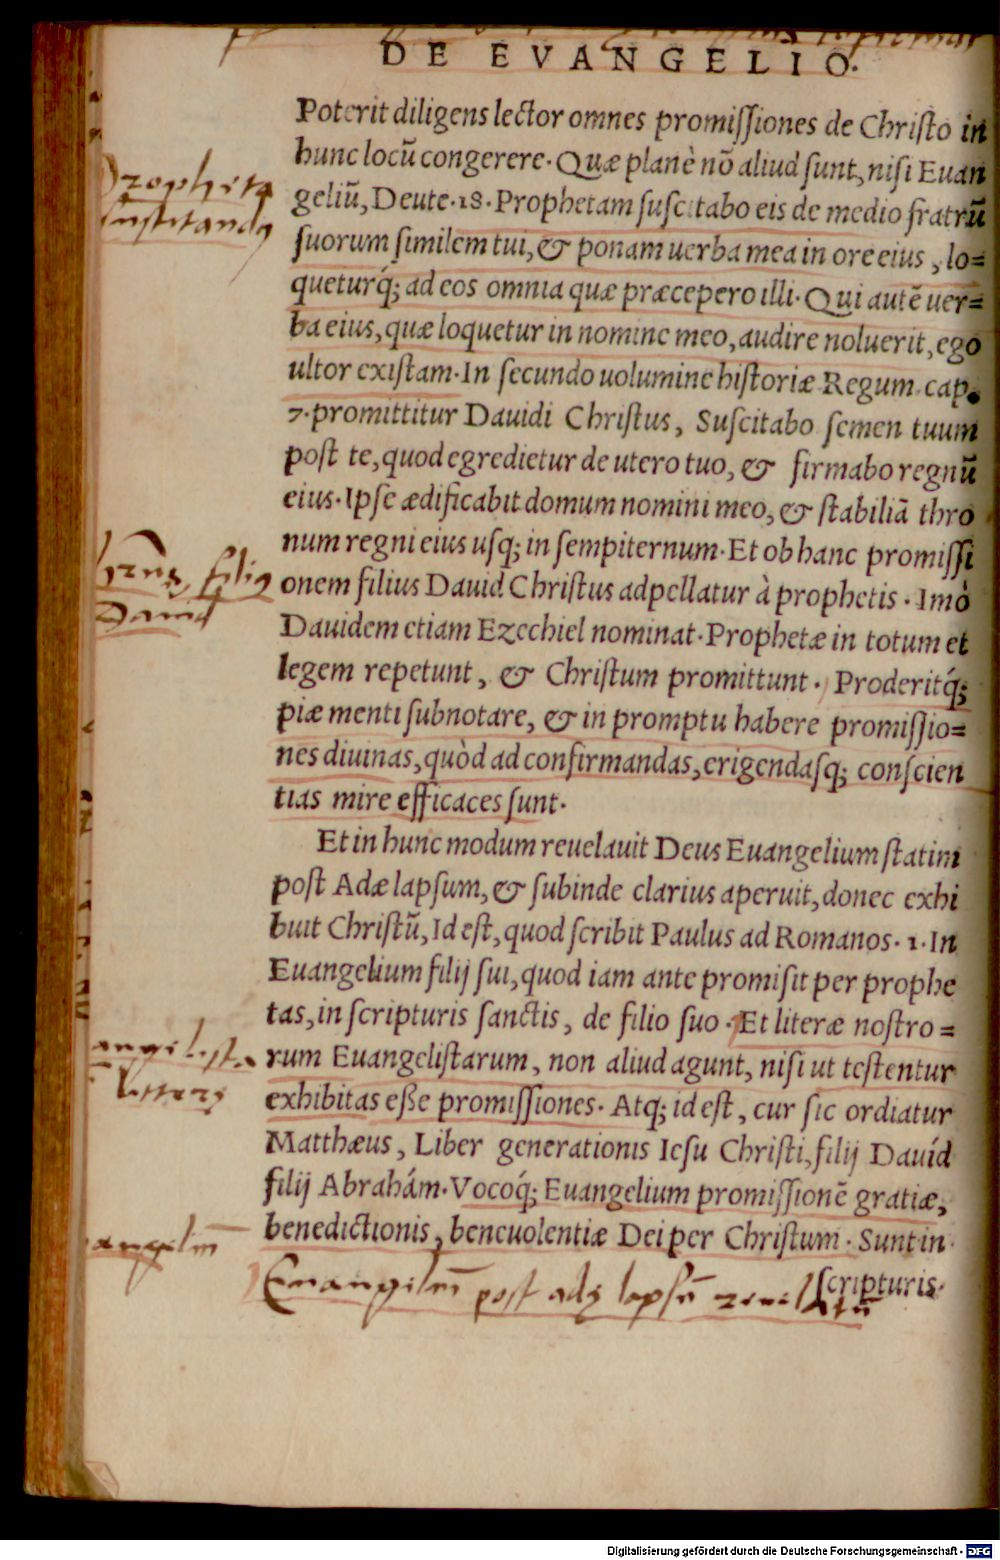 DE EVANGELIO.
Poterit diligens lector omnes promissiones de Christo in
hunc locū congerere. Quæ planè nō aliud sunt, nisi Euan
geliū, Deute. 18. Prophetam suscitabo eis de medio fratrū
suorum similem tui, & ponam uerba mea in ore eius, lo=
queturq́; ad eos omnia quæ præcepero illi. Qui autē uer=
ba eius, quæ loquetur in nomine meo, audire noluerit, ego
ultor existam. In secundo uolumine historiæ Regum cap.
7. promittitur Dauidi Christus, Suscitabo semen tuum
post te, quod egredietur de utero tuo, & firmabo regnū
eius. Ipse ædificabit domum nomini meo, & stabiliā thro
num regni eius usq; in sempiternum. Et ob hanc promissi
onem filius Dauid Christus adpellatur à prophetis. Imò
Dauidem etiam Ezechiel nominat. Prophetæ in totum et
legem repetunt, & Christum promittunt. Proderitq́;
piæ menti subnotare, & in promptu habere promissio=
nes diuinas, quòd ad confirmandas, erigendasq; conscien
tias mire efficaces sunt.
Et in hunc modum reuelauit Deus Euangelium statim
post Adæ lapsum, & subinde clarius aperuit, donec exhi
buit Christū, Id est, quod scribit Paulus ad Romanos. 1. In
Euangelium filij sui, quod iam ante promisit per prophe
tas, in scripturis sanctis, de filio suo. Et literæ nostro=
rum Euangelistarum, non aliud agunt, nisi ut testentur
exhibitas esse promissiones. Atq; id est, cur sic ordiatur
Matthæus, Liber generationis Iesu Christi, filij Dauíd
filij Abrahám. Vocoq́; Euangelium promissionē gratiæ,
benedictionis, beneuolentiæ Dei per Christum. Sunt in
scripturis.
Propheta
filiꝰ
Dauid
Euangeliū post adę lapsū reuelatū
Digitalisierung gefördert durch die Deutsche Forschungsgemeinschaft - DFG